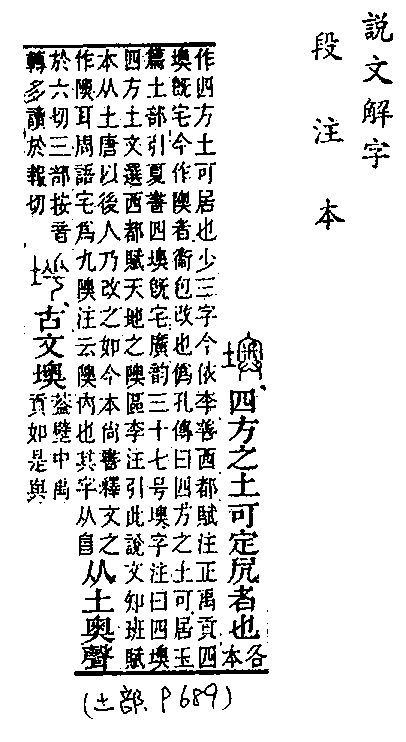 說文解字
段注本
四方之土可定凥者也各本
作四方土可居也少三字今依李善西都賦注正禹貢四
墺旣宅今作隩者衞包改也僞孔傳曰四方之土可居玉
篇土部引夏書四墺旣宅廣韵三十七号墺字注曰四墺
四方土文選西都賦天地之隩區李注引此說文知班賦
本从土唐以後人乃改之如今本尙書釋文之
作隩耳周語宅爲九隩注云隩內也其字从𨸏从土奥聲
於六切三部按音
轉多讀於報切古文墺葢壁中禹貢如是與
(土部.P689)